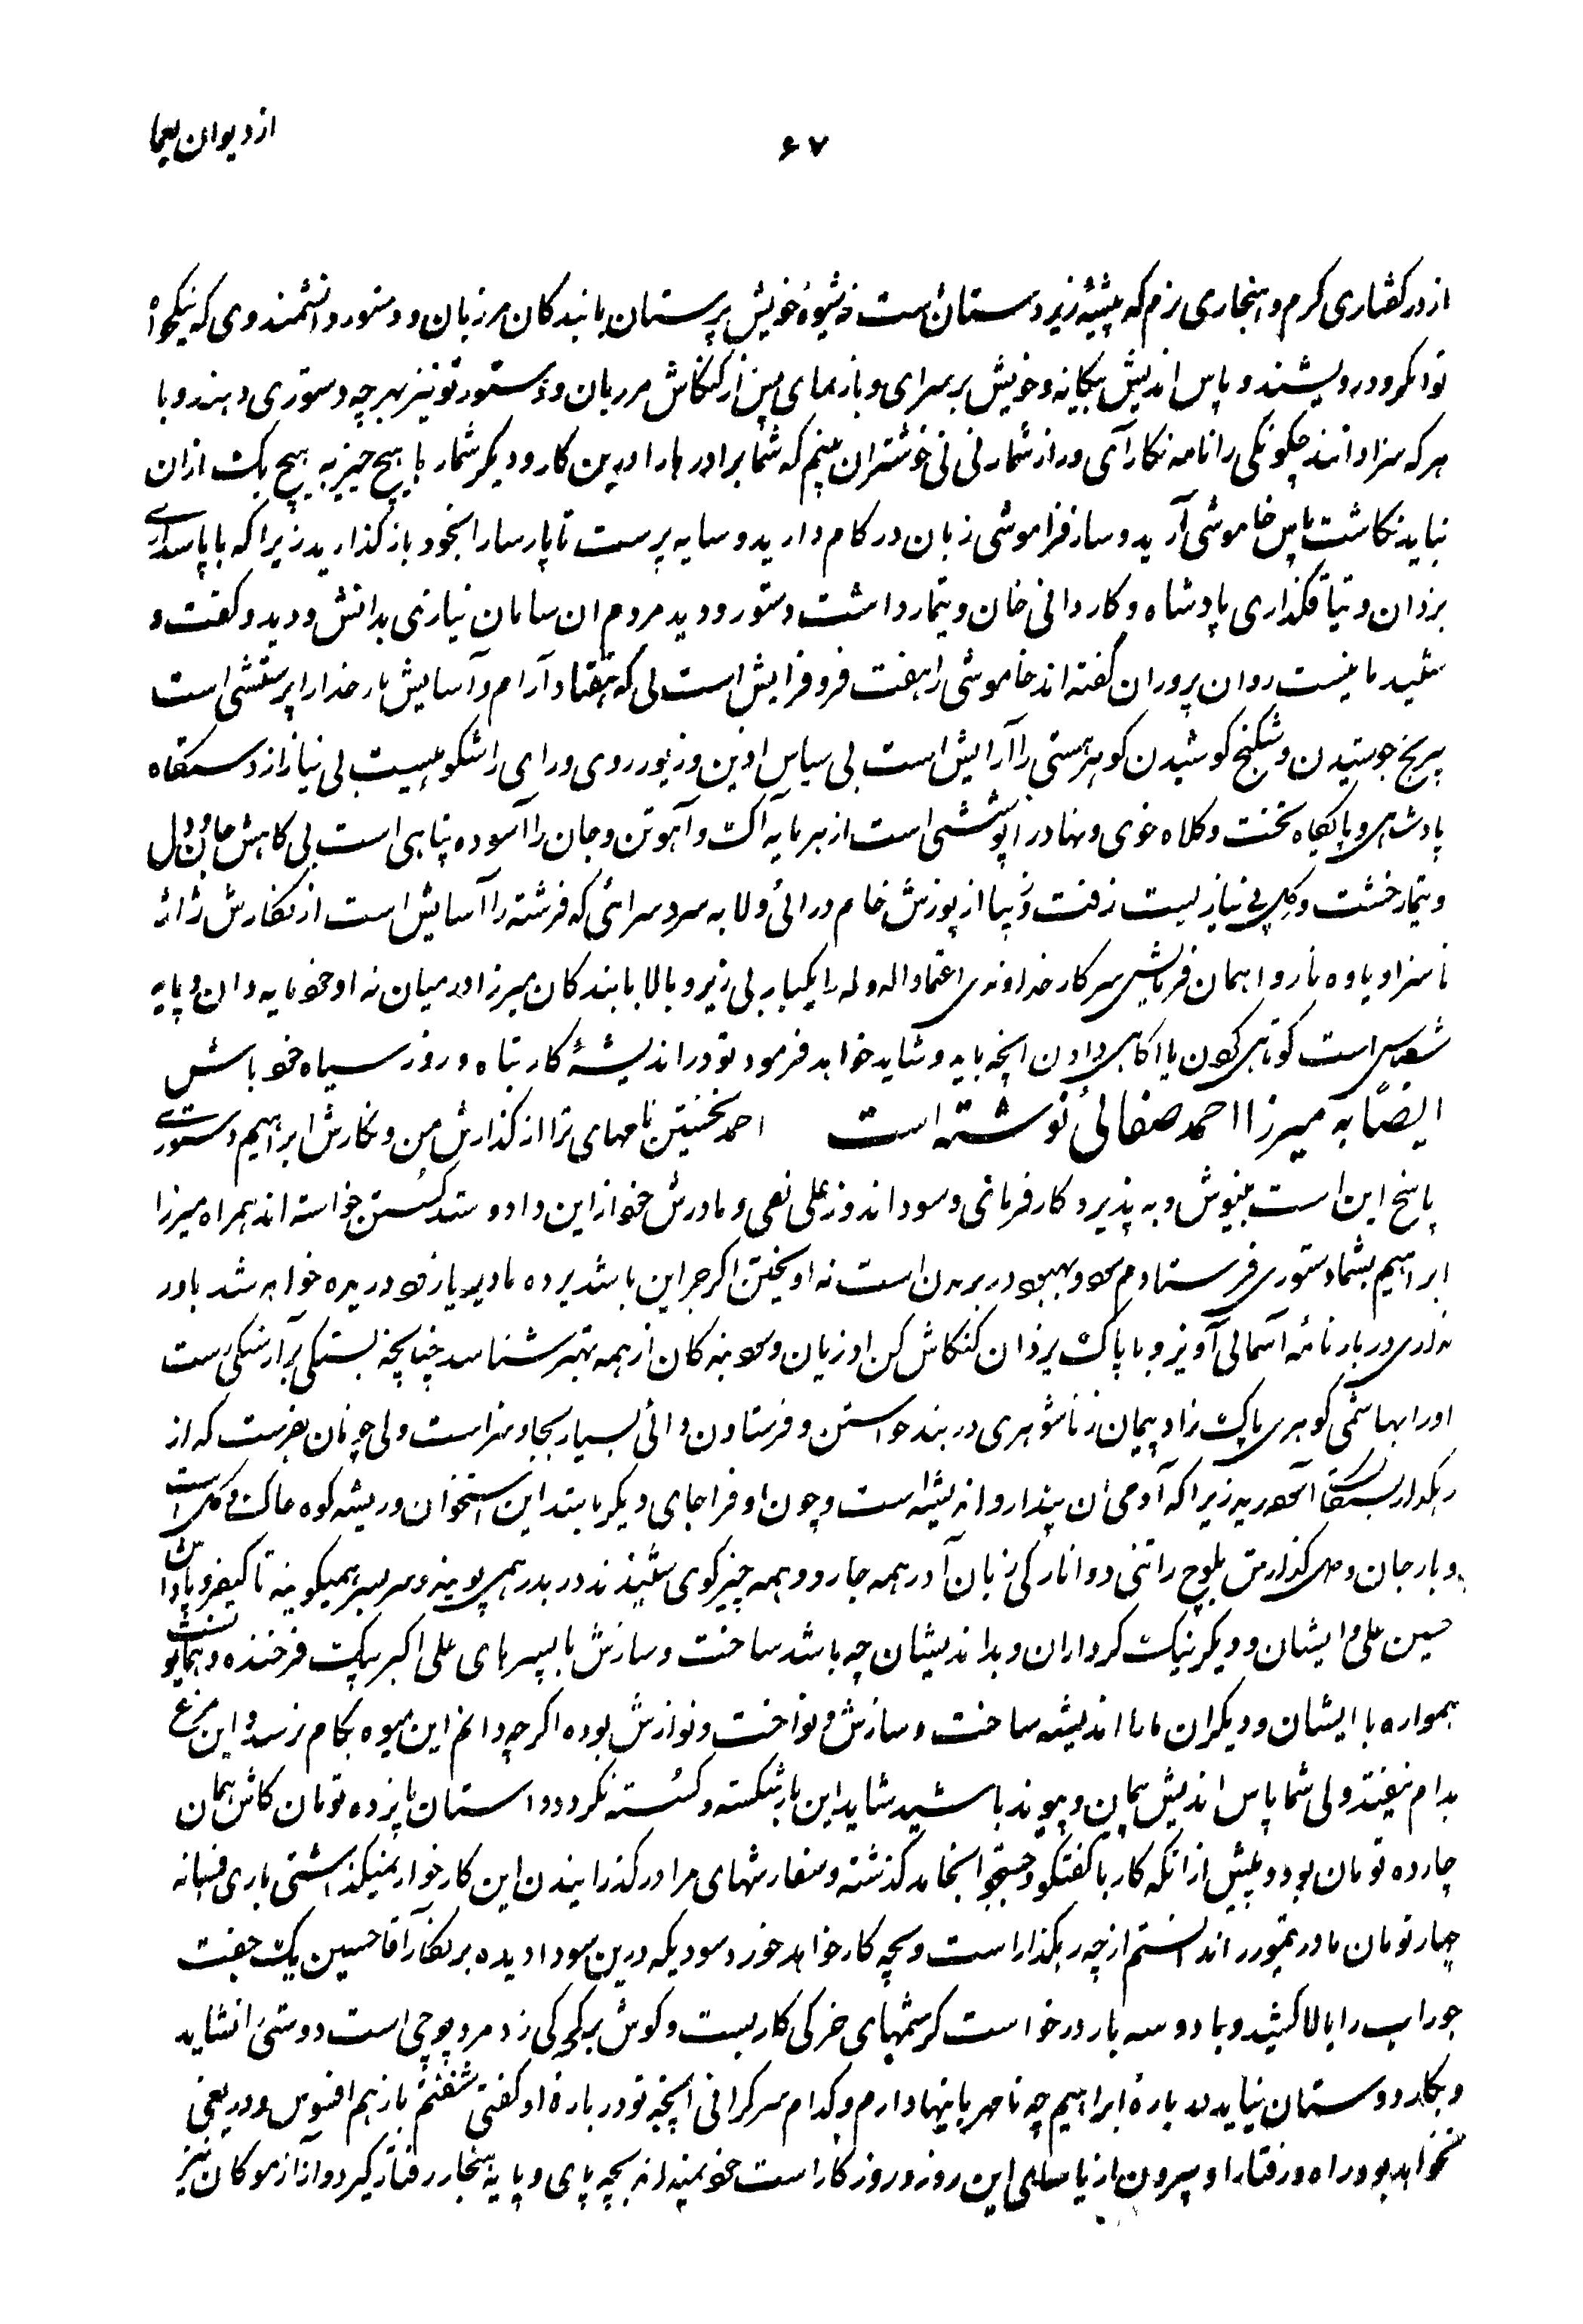 از دیوان یغما
۶۷
از در کفتاری کرم و هنجاری نرم که پیشهٔ زیردستان است نه شیوهٔ خویش پرستان با بندکان مرزبان و دستور دانشمند وی که نیکخواه
توانکر و درویشند و پاس اندیش بیکانه و خویش برسرای و بازنمای پس از کنکاش مرزبان و دستور تو نیز بهر چه دستوری دهند و با
هر که سزا دانند چکونکی را نامه نکار آی و راز شمار نی نی خوشتر ان بینم که شما برادرها را درین کار و دیکر شمار با هیچ چیز به هیچ یک ازان
نباید نکاشت پاس خاموشی آرید و ساز فراموشی زبان در کام دارید و سایه پرست تا پارسا را بخود باز کذارید زیرا که با پاسداری
یزدان و تیماقکذاری پادشاه و کاردانی خان و تیمار داشت دستور و دید مردم ان سامان نیازی بدانش و دید و کفت و
شنید ما نیست روان پروران کفته اند خاموشی را هفت فر و فزایش است بی که هفتاد آرام و آسایش بار خدا را پرستشی است
بی رنج جوشیدن و شکنج کوشیدن کوهر هستی را آرایش است بی سپاس اذین و زیور روی و رای را شکوهیست بی نیاز از دستکاه
پادشاهی و پایکاه تخت و کلاه خوی و نهاد را پوششی است از هر مایه آک و آهو تن و جان را آسوده پناهی است بی کاهش جان و دل
و تیمار خشت و کل بی نیازیست زفت و زیبا از پوزش خام درائی و لابه سرد سرائی که فرشته را آسایش است از نکارش ژاژ
ناسزا و یاوه ناروا همان فرمایش سرکار خداوندی اعتماد الدوله را یکبار بی زیر و بالا با بندکان میرزا در میان نه او خود مایه دان و پایه
شناس است کوتاهی کردن یا اکاهی دادن انچه باید و شاید خواهد فرمود تو در اندیشهٔ کار تباه و روز سیاه خود باش
ایضاً به میرزا احمد صفائی نوشته است احمد نخستین نامهای ترا از کذارش من و نکارش ابراهیم دستوری
پاسخ این است بنیوش و به پذیر و کارفرمای و سود اندوز علی نقی و مادرش خود از این داد و ستد کسستن خواسته اند همراه میرزا
ابراهیم بشما دستوری فرستادم سود و بهبود در بریدن است نه اویختن اکر جز این باشد پرده ما دیر یا زود دریده خواهد شد باور
نداری در بارنامه آسمانی آویز و با پاک یزدان کنکاش کن او زیان و سود بندکان از همه بهتر شناسد چنانچه بستکی برآرستکی است
اورا بهاشمی کوهری پاک زاد پیمان زناشوهری در بند خواستن و فرستادن دائی بسیار بجا و سزاست ولی چونان هنرست که از
رهکذار زیرا که آدمی ان پندار و اندیشه است و چون او فرا جای دیکر ماند این استخوان و ریشه کوه خاک و کل است
و بار جان و دل کذارش بلوچ را تنی دو انارکی زبان آور همه جا رو و همه چیز کوی شنیذند در بدر همی پویند و سر بسر همیکویند تا کیفر و پاداش
حسین علی و ایشان و دیکر نیک کرداران و بد اندیشان چه باشد ساخت و سازش با پسرهای علی اکبر بیک فرخنده و همایونست
همواره با ایشان و دیکران مارا اندیشه ساخت و سازش و نواخت و نوازش بوده اکر چه دانم این میوه بکام نرسد و این مرغ
بدام نیفتد ولی شما پاس اندیش پیمان و پیوند باشید شاید این بار شکسته و کسسته نکردد داستان پانزده تومان کاش همان
چارده تومان بود و پیش از انکه کار با کفتکو و جستجو انجامد کذشته و سفارشهای مرا در کذرانیدن این کار خوار نمیکذاشتی باری فسانه
چهار تومان مادر تیمور را ندانستم از چه رهکذار است و بچه کار خواهد خورد سودیکه درین سودا دیده برنکار آقا حسین یک جفت
جوراب را بالا کشید و با دو سه بار درخواست کرشمهای خرکی کار بست و کوش بر کچکی زد مرد پوچی است دوستی را نشاید
و بکار دوستان نیاید در بارهٔ ابراهیم چه نامهربانیها دارم و کدام سرکرانی انچه تو در بارهٔ او کفتی شنفتم باز هم افسوس و دریغی
نخواهد بود راه و رفتار او بیرون از یاسای این روز و روزکار است خود میداند بچه پای و پایه هنجار رفتار کیرد و از آزموکان نیز